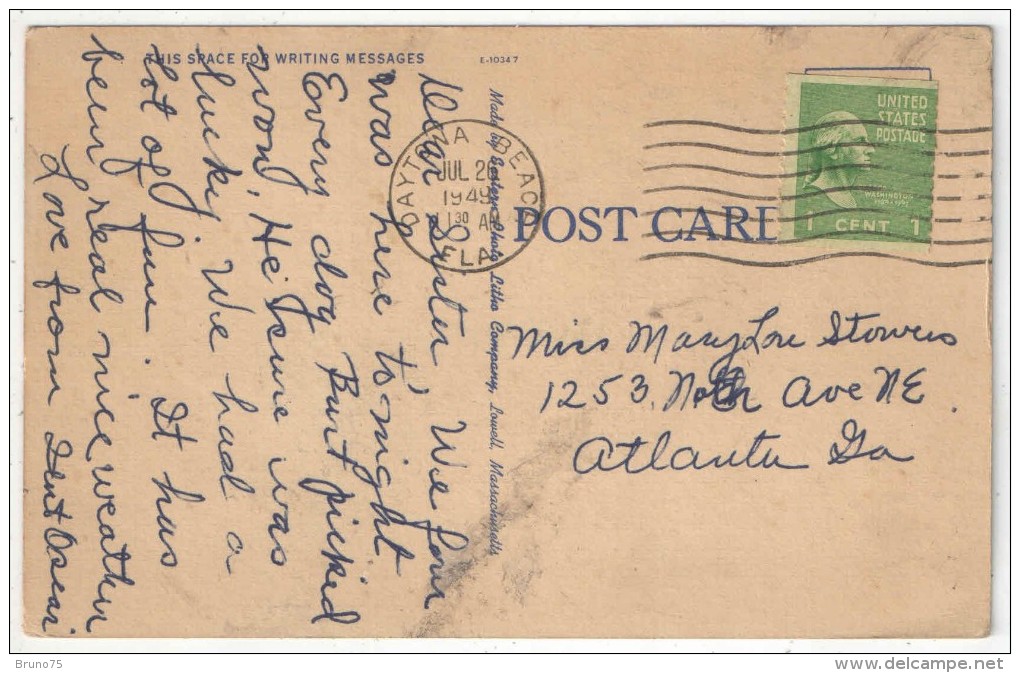 THIS SPACE FOR WRITING MESSAGES
E-10347
Dear Sister, We four
was here to night
Every dog Burt picked
won, He sure was
lucky. We had a
lot of fun. It has
been real nice weather
Love from
Made by Eastern Photo Litho Company, Lowell, Massachusetts
DAYTONA BEACH
JUL 26
1949
11 30 AM
FLA
POST CARD
UNITED
STATES
POSTAGE
WASHINGTON
1 CENT 1
Miss Mary Lou Stowers
1253 North Ave NE.
Atlanta Ga
Bruno75
www.delcampe.net